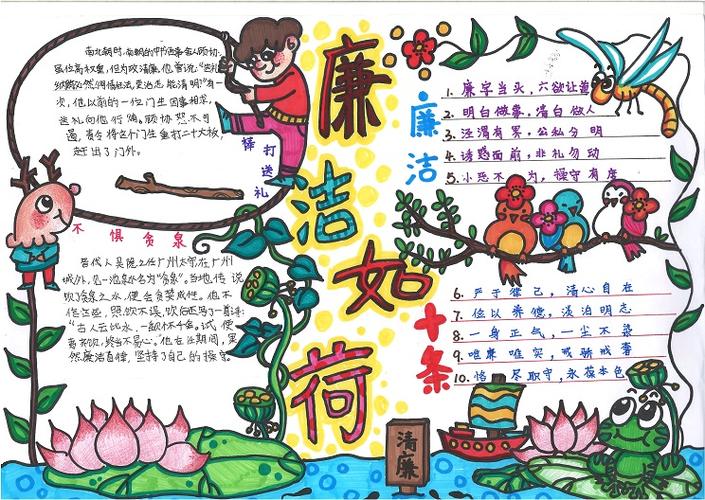 廉洁如荷
南北朝时,南朝的中书通事舍人顾协,
虽位高权重,但为政清廉,他曾说:“送礼
次,他以前的一位门生因事相求,
送礼向他行贿。顾协怒不可
遏,责令将这个门生重打二十大板,
赶出了门外。
棒打送礼
不惧贪泉
晋代人吴隐之任广州太守,在广州
城外,见一池泉水名为“贪泉”。当地传说
饮了贪泉之水,便会贪婪成性。他不
信这些,照饮不误,饮后还写了一首诗:
“古人云此水,一歃怀千金。试使
夷齐饮,终当不易心。”他在任期间,果
然廉洁自律,坚持了自己的操守。
廉洁
十条
1. 廉字当头,六欲让道
2. 明白做事,清白做人
3. 泾渭有界,公私分明
4. 诱惑面前,非礼勿动
5. 小恶不为,操守有度
6. 严于律己,清心自在
7. 俭以养德,淡泊明志
8. 一身正气,一尘不染
9. 唯廉唯实,戒骄戒奢
10. 恪尽职守,永葆本色
清廉